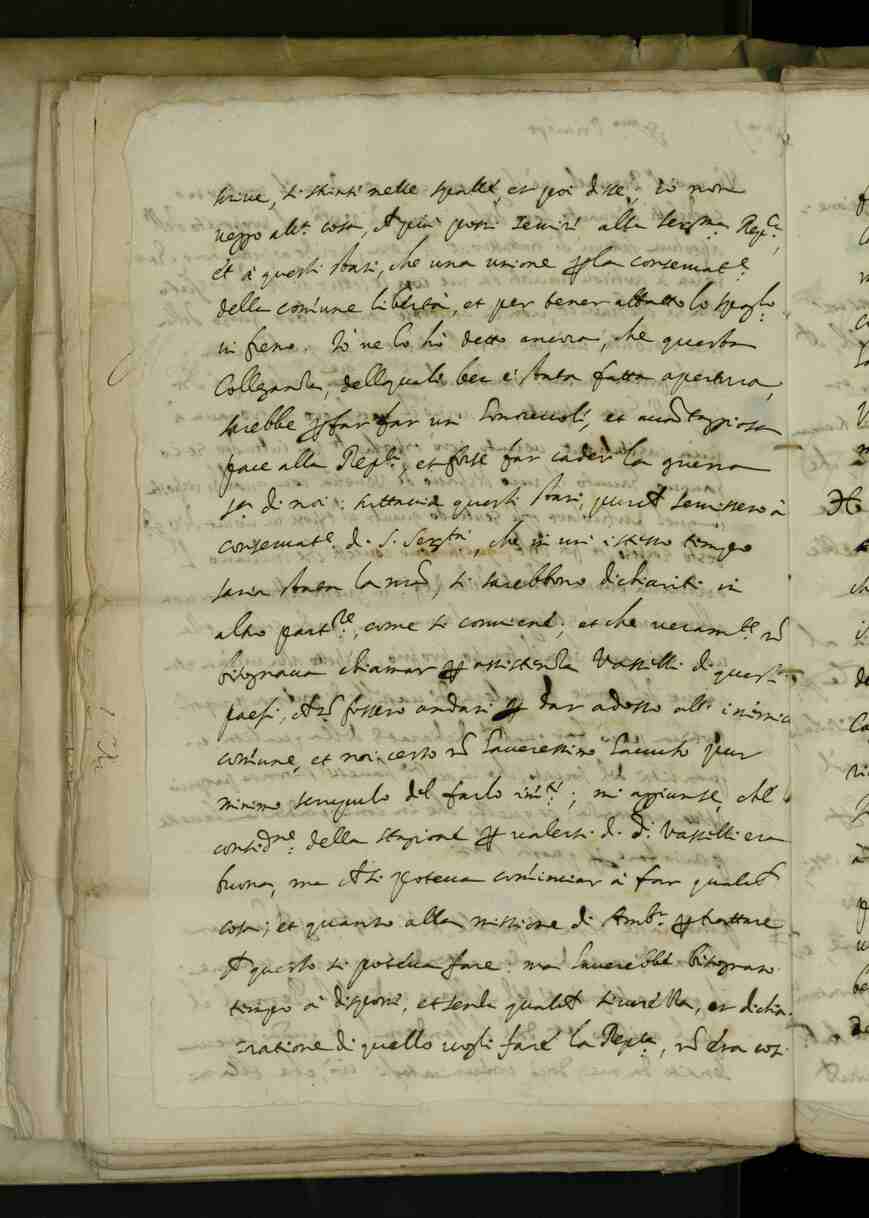 scrive, si strinse nelle spalle, et poi disse, io non
veggo altra cosa, che più possi servire alla Serma Repca,
et à questi stati, che una unione per la conservatne
della comune libertà, et per tener affatto lo spaglo
in freno. Io ne lo hò detto ancora, che questa
Colleganza, della quale ben è stata fatta apertura,
sarebbe per far far un honorevole, et avantaggiosa
pace alla Repca, et forse far cader la guerra
sa di noi: tuttavia questi stati, purche servissero à
conservatne di S. Sertà, che in un istesso tempo
saria stata la mede, si sarebbono dichiariti in
altro partre, come si conviene; et che veramte nō
bisognava chiamar per assistenza Vasselli di questi
paesi, che nō fossero andati per dar adosso all'inimico
comune, et noi certo nō haveressimo havuto pur
minimo scrupulo del farlo; mi aggiunse, che la
considne della stagione per valersi di di Vasselli era
buona, ma che si poteva cominciar à far qualche
cosa; et quanto alla missione di Ambr per trattare
che questo si poteva fare: ma haverebbe bisognato
tempo à disponer, et senza qualche sicurezza, et dichia-
ratione di quello vogli fare la Repca, nō era cosi